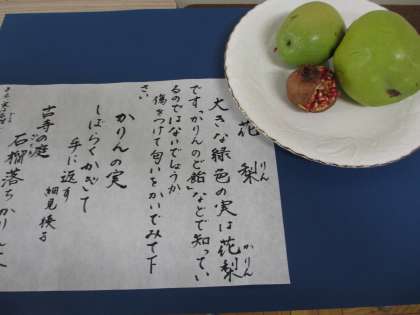 花梨
りん
大きな緑色の実は花梨
かりん
です。「かりんのど飴」などで知ってい
るのではないでしょうか
傷をつけて匂いをかいでみて下
さい
かりんの実
しばらくかぎて
手に返す
細見
古寺の庭
石榴落ち かりん